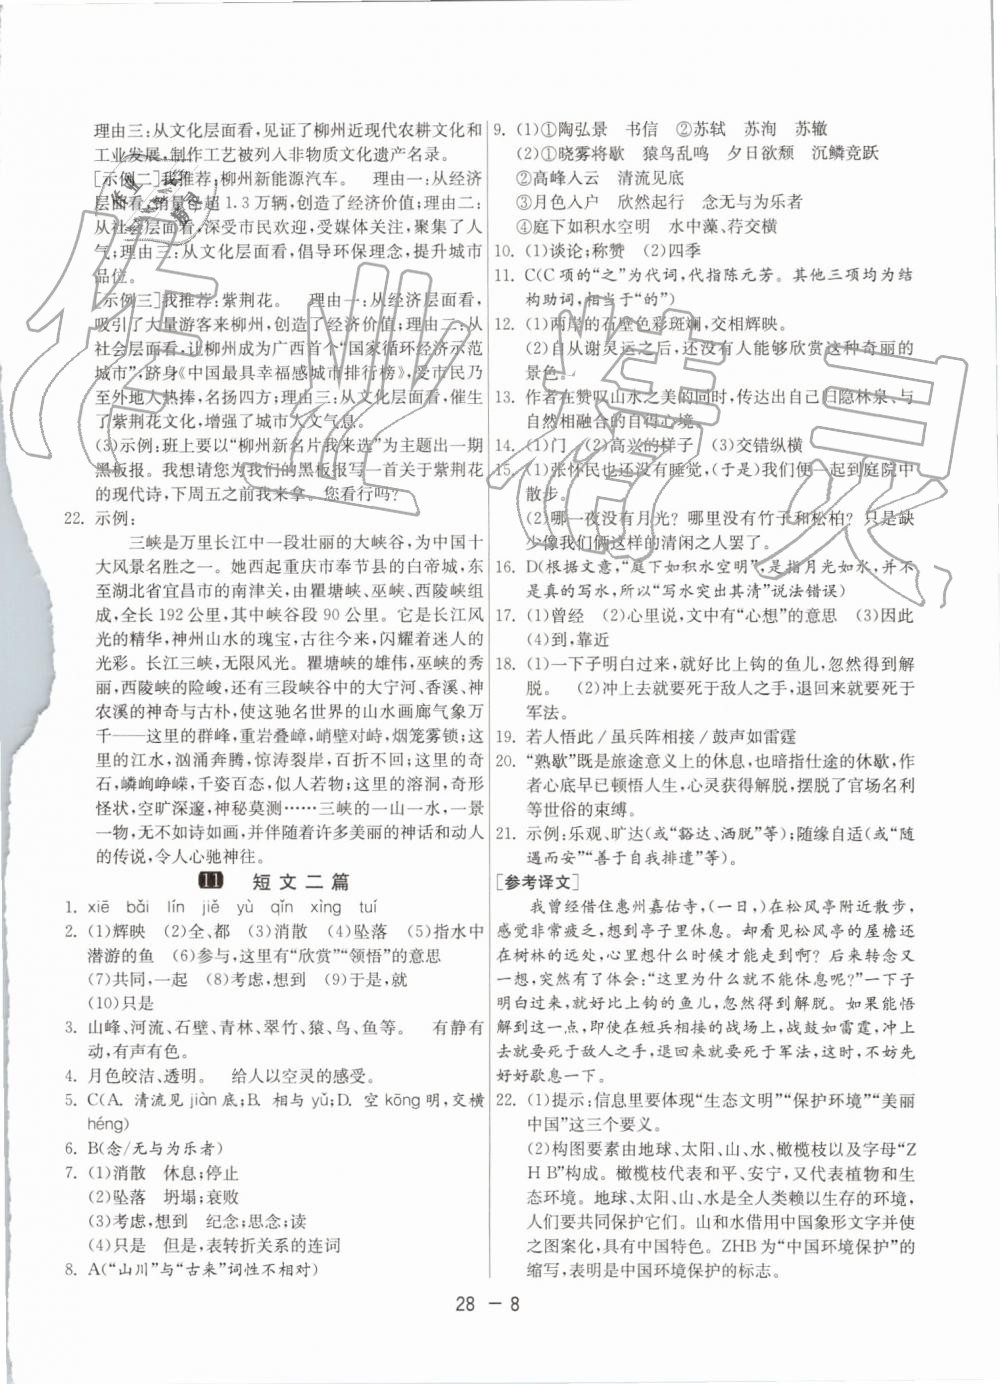 理由三:从文化层面看,见证了柳州近现代农耕文化和
工业发展,制作工艺被列入非物质文化遗产名录。
[示例二]我推荐:柳州新能源汽车。 理由一:从经济
层面看,销量已超1.3万辆,创造了经济价值;理由二:
从社会层面看,深受市民欢迎,受媒体关注,聚集了人
气;理由三:从文化层面看,倡导环保理念,提升城市
品位。
[示例三]我推荐:紫荆花。 理由一:从经济层面看,
吸引了大量游客来柳州,创造了经济价值;理由二:从
社会层面看,让柳州成为广西首个“国家循环经济示范
城市”,跻身《中国最具幸福感城市排行榜》,受市民乃
至外地人热捧,名扬四方;理由三:从文化层面看,催生
了紫荆花文化,增强了城市人文气息。
(3)示例:班上要以“柳州新名片我来选”为主题出一期
黑板报。我想请您给我们的黑板报写一首关于紫荆花
的现代诗,下周五之前我来拿。您看行吗?
22. 示例:
三峡是万里长江中一段壮丽的大峡谷,为中国十
大风景名胜之一。她西起重庆市奉节县的白帝城,东
至湖北省宜昌市的南津关,由瞿塘峡、巫峡、西陵峡组
成,全长192公里,其中峡谷段90公里。它是长江风
光的精华,神州山水的瑰宝,古往今来,闪耀着迷人的
光彩。长江三峡,无限风光。瞿塘峡的雄伟,巫峡的秀
丽,西陵峡的险峻,还有三段峡谷中的大宁河、香溪、神
农溪的神奇与古朴,使这驰名世界的山水画廊气象万
千——这里的群峰,重岩叠嶂,峭壁对峙,烟笼雾锁;这
里的江水,汹涌奔腾,惊涛裂岸,百折不回;这里的奇
石,嶙峋峥嵘,千姿百态,似人若物;这里的溶洞,奇形
怪状,空旷深邃,神秘莫测……三峡的一山一水,一景
一物,无不如诗如画,并伴随着许多美丽的神话和动人
的传说,令人心驰神往。
11 短文二篇
1. xiē bǎi lín jiě yù qǐn xìng tuí
2. (1)辉映 (2)全、都 (3)消散 (4)坠落 (5)指水中
潜游的鱼 (6)参与,这里有“欣赏”“领悟”的意思
(7)共同,一起 (8)考虑,想到 (9)于是,就
(10)只是
3. 山峰、河流、石壁、青林、翠竹、猿、鸟、鱼等。 有静有
动,有声有色。
4. 月色皎洁、透明。 给人以空灵的感受。
5. C(A. 清流见jiàn底;B. 相与yǔ;D. 空kōng明,交横
héng)
6. B(念/无与为乐者)
7. (1)消散 休息;停止
(2)坠落 坍塌;衰败
(3)考虑,想到 纪念;思念;读
(4)只是 但是,表转折关系的连词
8. A(“山川”与“古来”词性不相对)
9. (1)①陶弘景 书信 ②苏轼 苏洵 苏辙
(2)①晓雾将歇 猿鸟乱鸣 夕日欲颓 沉鳞竞跃
②高峰入云 清流见底
③月色入户 欣然起行 念无与为乐者
④庭下如积水空明 水中藻、荇交横
10. (1)谈论;称赞 (2)四季
11. C(C项的“之”为代词,代指陈元芳。其他三项均为结
构助词,相当于“的”)
12. (1)两岸的石壁色彩斑斓,交相辉映。
(2)自从谢灵运之后,还没有人能够欣赏这种奇丽的
景色。
13. 作者在赞叹山水之美的同时,传达出自己归隐林泉、与
自然相融合的自得心境。
14. (1)门 (2)高兴的样子 (3)交错纵横
15. (1)张怀民也还没有睡觉,(于是)我们便一起到庭院中
散步。
(2)哪一夜没有月光? 哪里没有竹子和松柏? 只是缺
少像我们俩这样的清闲之人罢了。
16. D(根据文意,“庭下如积水空明”,是指月光如水,并不
是真的写水,所以“写水突出其清”说法错误)
17. (1)曾经 (2)心里说,文中有“心想”的意思 (3)因此
(4)到,靠近
18. (1)一下子明白过来,就好比上钩的鱼儿,忽然得到解
脱。 (2)冲上去就要死于敌人之手,退回来就要死于
军法。
19. 若人悟此/虽兵阵相接/鼓声如雷霆
20. “熟歇”既是旅途意义上的休息,也暗指仕途的休歇,作
者心底早已顿悟人生,心灵获得解脱,摆脱了官场名利
等世俗的束缚。
21. 示例:乐观、旷达(或“豁达、洒脱”等);随缘自适(或“随
遇而安”“善于自我排遣”等)。
[参考译文]
我曾经借住惠州嘉佑寺,(一日,)在松风亭附近散步,
感觉非常疲乏,想到亭子里休息。却看见松风亭的屋檐还
在树林的远处,心里想这样什么时候才能走到啊? 后来转念又
一想,突然有了体会:“这里为什么就不能休息呢?”一下子
明白过来,就好比上钩的鱼儿,忽然得到解脱。如果能悟
解到这一点,即使在短兵相接的战场上,战鼓如雷霆,冲上
去就要死于敌人之手,退回来就要死于军法,这时,不妨先
好好歇息一下。
22. (1)提示:信息里要体现“生态文明”“保护环境”“美丽
中国”这三个要义。
(2)构图要素由地球、太阳、山、水、橄榄枝以及字母“Z
H B”构成。橄榄枝代表和平、安宁,又代表植物和生
态环境。地球、太阳、山、水是全人类赖以生存的环境,
人们要共同保护它们。山和水借用中国象形文字并使
之图案化,具有中国特色。ZHB为“中国环境保护”的
缩写,表明是中国环境保护的标志。
28 - 8
作业精灵